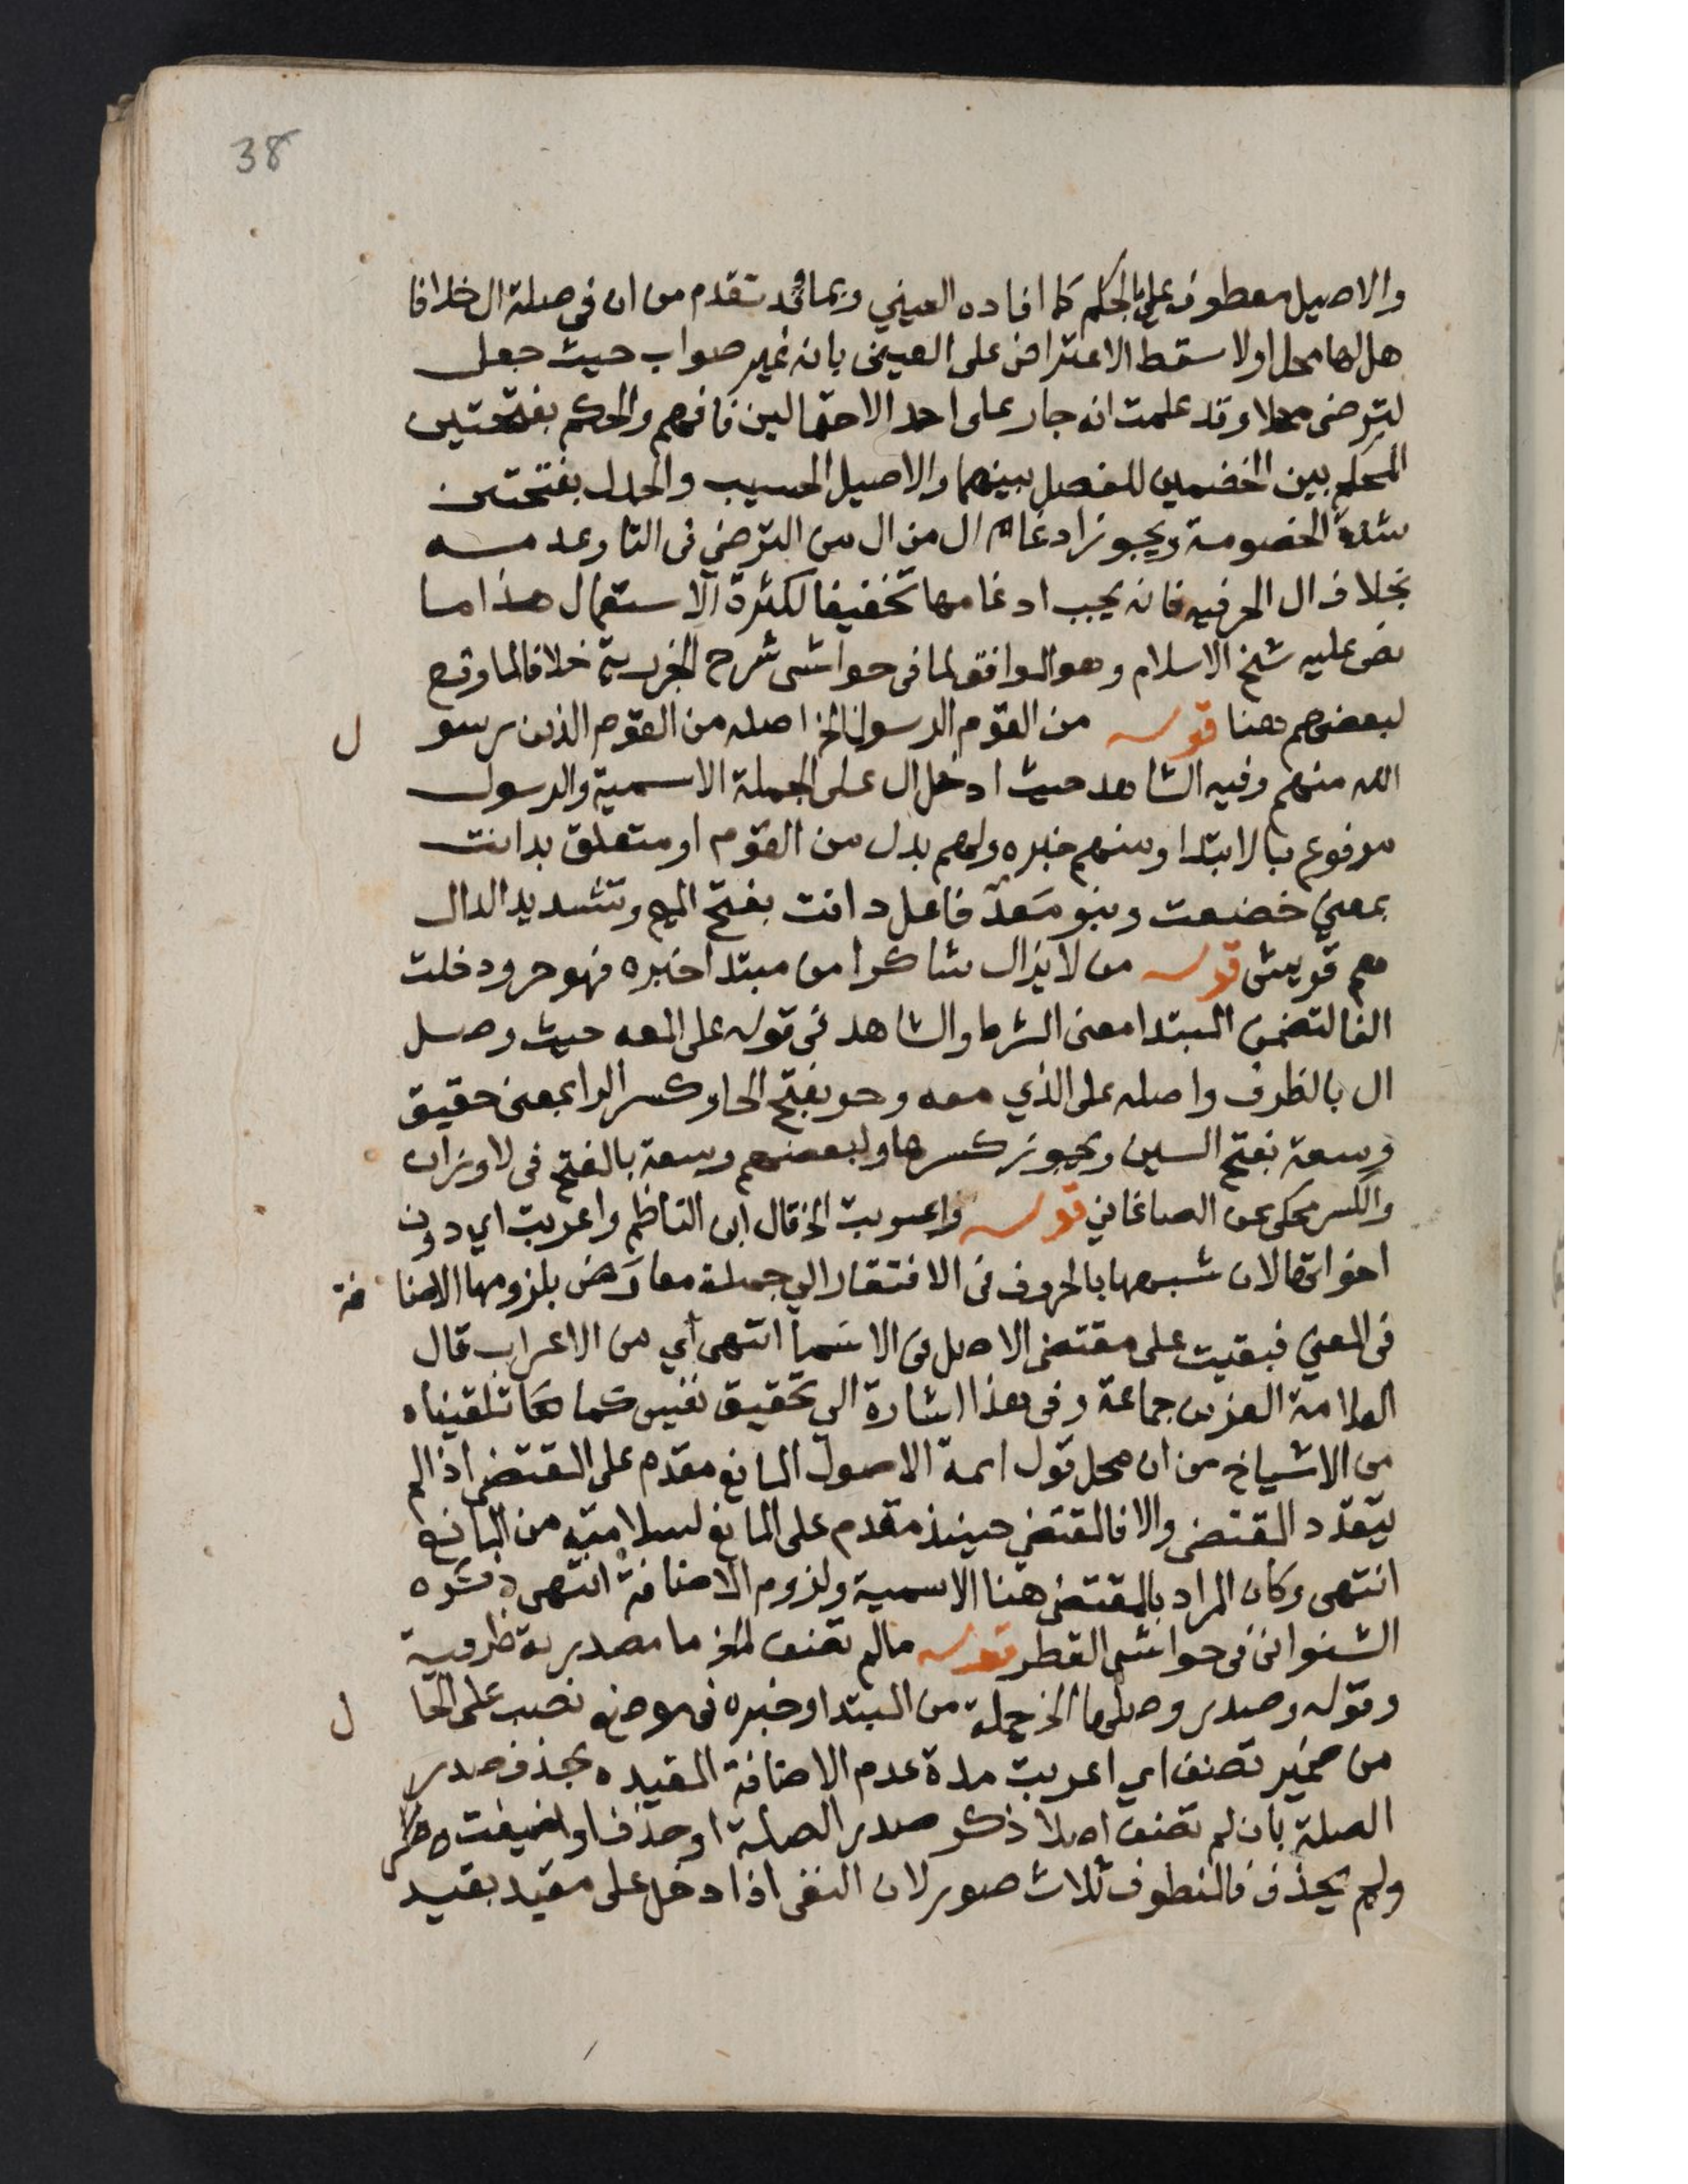 38
والاصيل معطوف على الحكم كما افاده العيني وبما قد تقدم من ان في صلة ال خلافا
هل لها محل اولا سقط الاعتراض على العيني بانه غير صواب حيث جعل
لترضى محلا وقد علمت انه جار على احد الاحتمالين فافهم والحكم بفتحتين
المحكم بين الخصمين للفصل بينهما والاصيل الحسيب والجدل بفتحتين
شدة الخصومة ويجوز ادغام ال من ال من الترضي في التا وعدمه
بخلاف ال الحرفيه فانه يجب ادغامها تخفيفا لكثرة الاستعمال هذا ما
نص عليه شيخ الاسلام وهو الموافق لما في حواشي شرح الجزرية خلافا لما وقع
لبعضهم هنا قوله من القوم الرسول الخ اصله من القوم الذين رسول
الله منهم وفيه الشاهد حيث ادخل ال على الجملة الاسمية والرسول
مرفوع بالابتدا ومنهم خبره ولهم بدل من القوم او متعلق بدانت
بمعني خضعت وبنو معد فاعل دانت بفتح الميم وتشديد الدال
هم قريش قوله من لا يزال شاكرا من مبتدا خبره فهو حر ودخلت
الفا لتضمن المبتدا معنى الشرط والشاهد في قوله على المعه حيث وصل
ال بالظرف واصله على الذي معه وحر بفتح الحا وكسر الرا بمعنى حقيق
وسعة بفتح السين ويجوز كسرها ولبعضهم وسعة بالفتح في لاوزان
والكسر محكى عن الصاغاني قوله واعربت الخ قال ابن الناظم واعربت اي دون
اخواتها لان شبهها بالحروف في الافتقار الي جملة معارض بلزومها الاضافة
في المعني فبقيت على مقتضى الاصل في الاسما انتهى اي من الاعراب قال
العلامة العز بن جماعة وفي هذا اشارة الي تحقيق نفيس كما كنا تلقيناه
من الاشياخ من ان محل قول ايمة الاصول المانع مقدم على المقتضى اذا لم
يتعدد المقتضى والا فالمقتضي حينئذ مقدم على المانع لسلامته من المانع
انتهى وكان المراد بالمقتضى هنا الاسمية ولزوم الاضافة انتهى ذكره
الشنواني في حواشي القطر قوله مالم تضف الخ ما مصدرية ظرفية
وقوله وصدر وصلها الخ جملة من المبتدا وخبره في موضع نصب على الحال
من ضمير تضف اي اعربت مدة عدم الاضافة المقيده بحذف صدر
الصلة بان لم تضف اصلا ذكر صدر الصلة او حذف او اضيفت
ولم يحذف فالمنطوق ثلاث صور لان النفي اذا دخل على مقيد بقيد